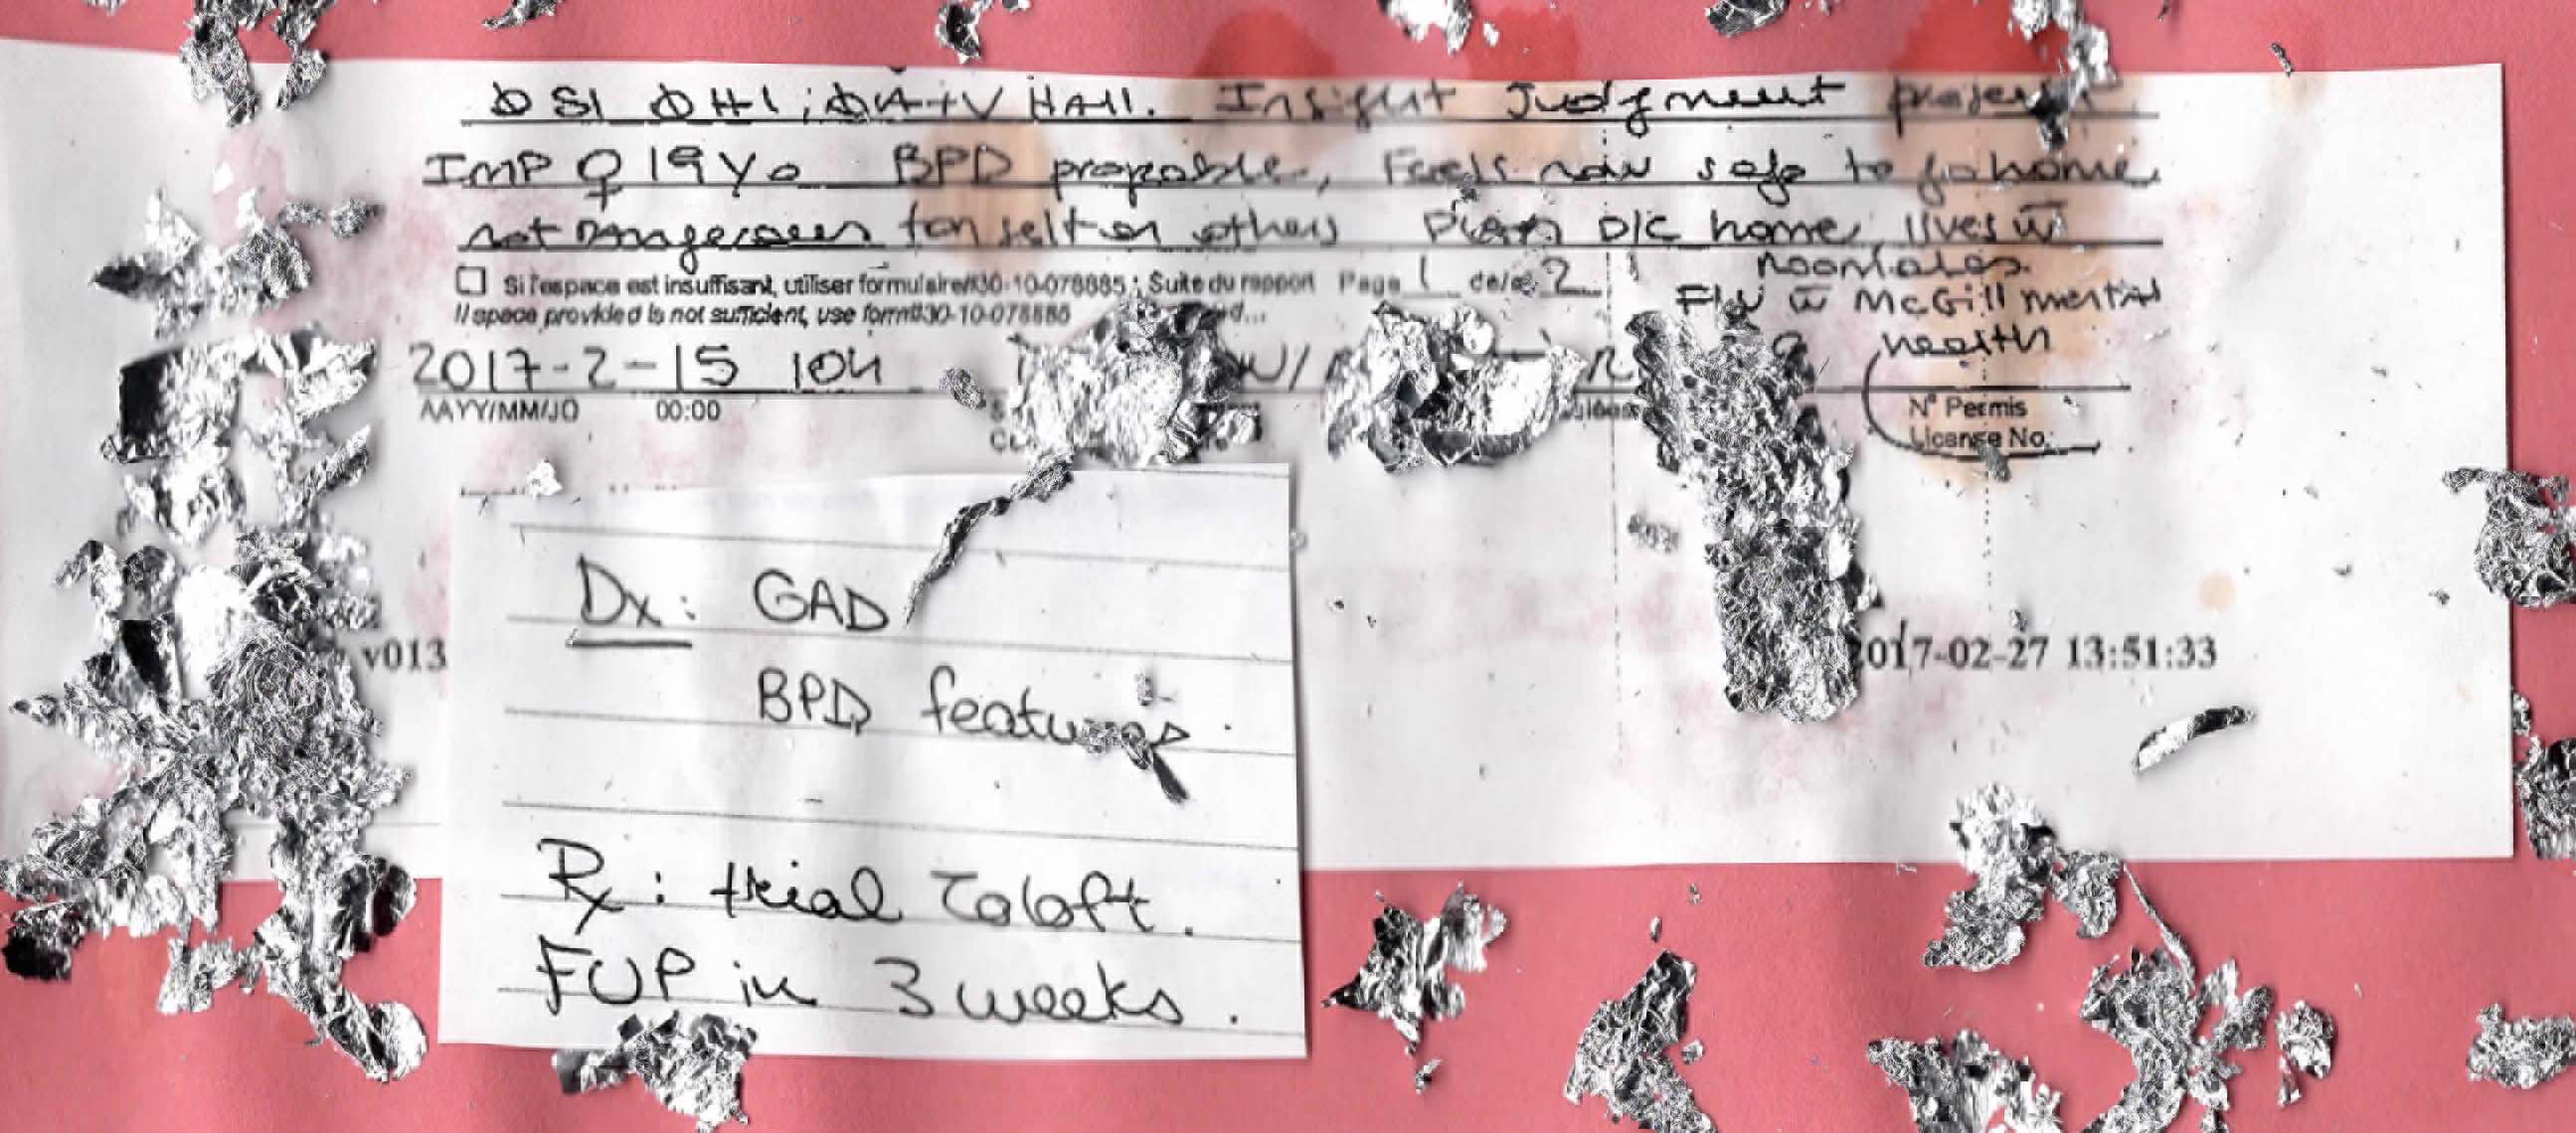 Ø SI Ø HI; Ø A+V HAll. Insight Judgment present
IMP ♀ 19 Yo BPD propable, Feels now safe to go home
not Dangerous for self or others Plan D/C home, lives w̄
roomates.
☐ Si l'espace est insuffisant, utiliser formulaire#30-10-078885 : Suite du rapport Page 1 de/of 2
If space provided is not sufficient, use form#30-10-078885
F/U w̄ McGill mental
health
2017-2-15 10H
AAYY/MM/JO 00:00
N° Permis
License No.
v013
2017-02-27 13:51:33
Dx: GAD
BPD features
Rx: trial Zoloft.
FUP in 3 weeks.